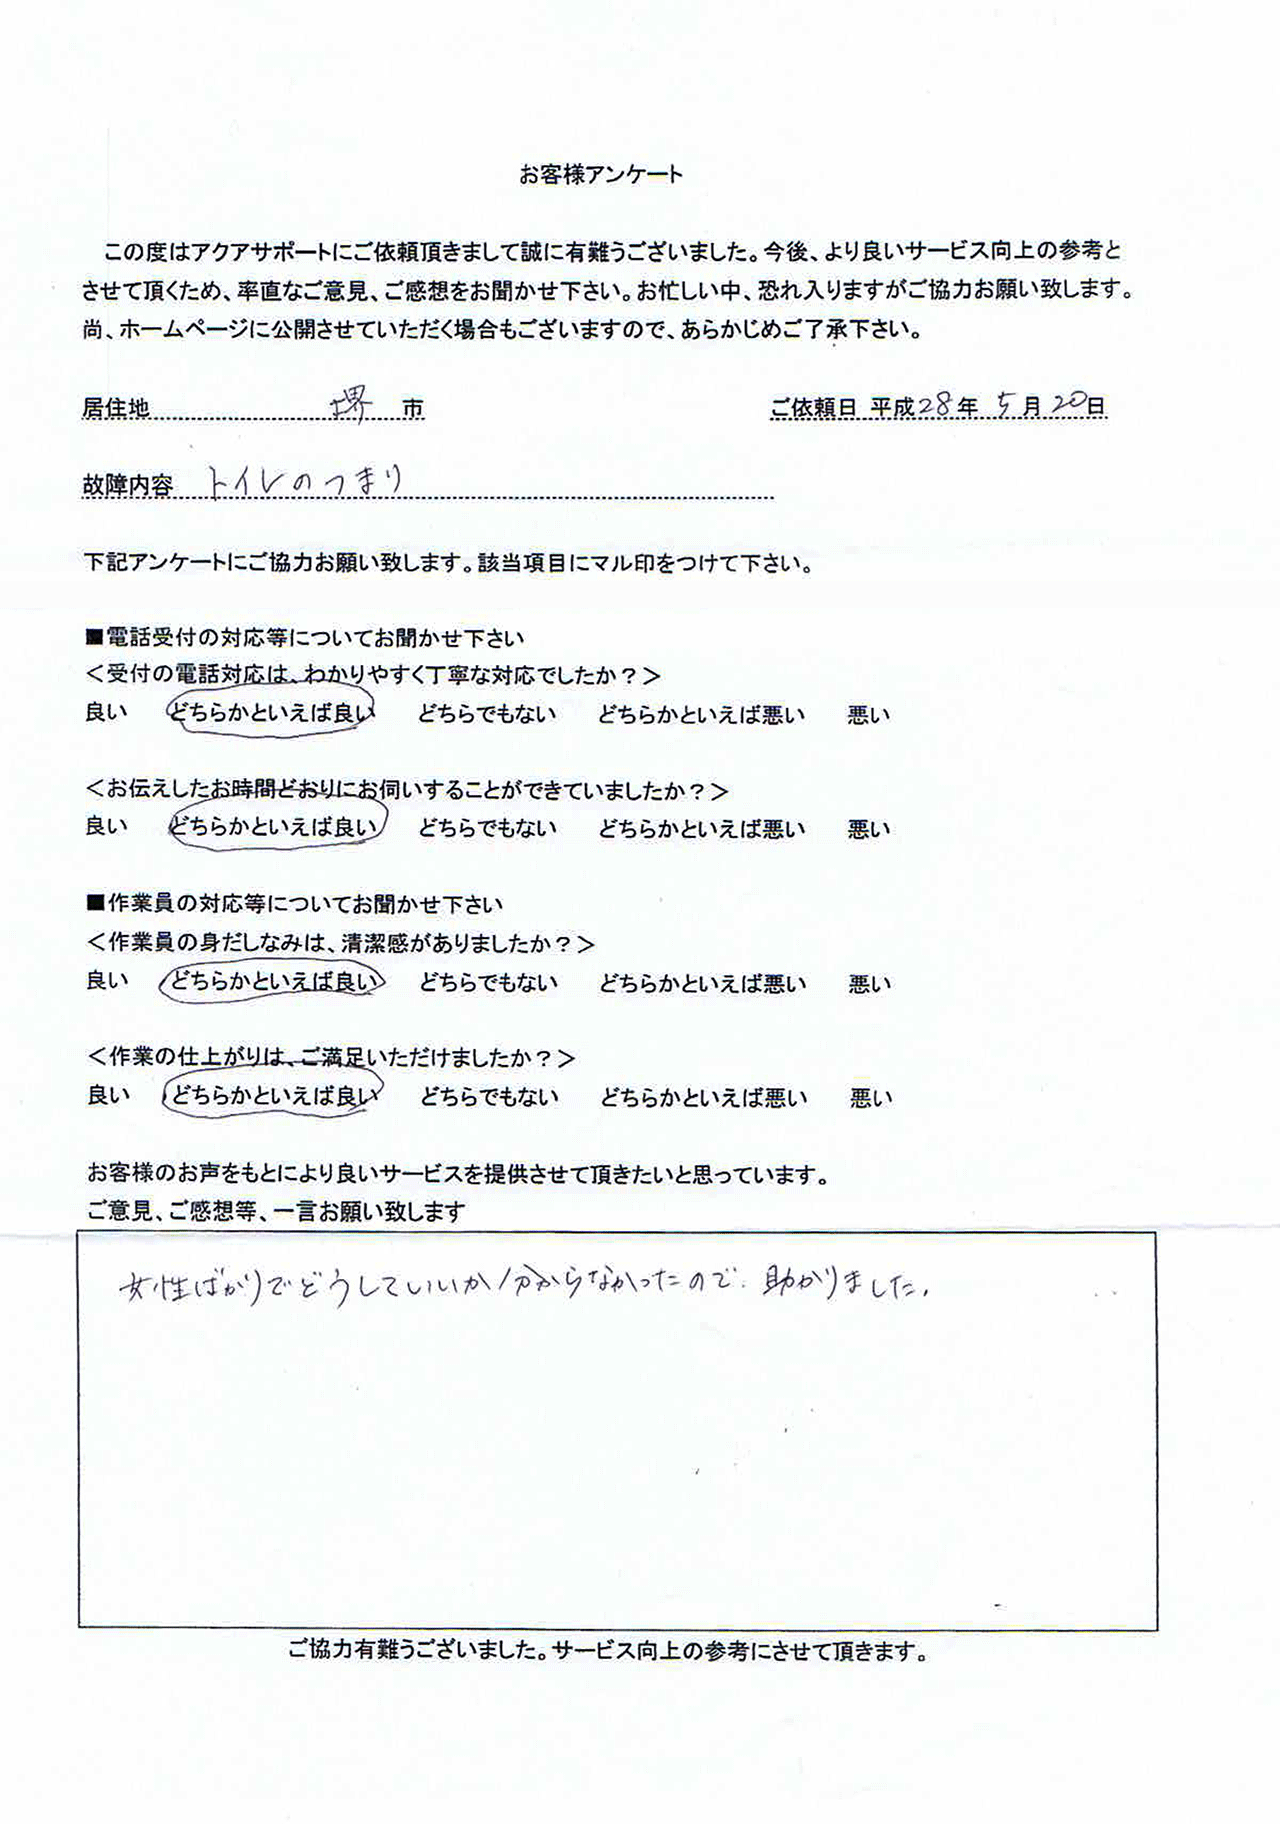 お客様アンケート
この度はアクアサポートにご依頼頂きまして誠に有難うございました。今後、より良いサービス向上の参考と
させて頂くため、率直なご意見、ご感想をお聞かせ下さい。お忙しい中、恐れ入りますがご協力お願い致します。
尚、ホームページに公開させていただく場合もございますので、あらかじめご了承下さい。
居住地 堺 市 ご依頼日 平成28年 5月20日
故障内容 トイレのつまり
下記アンケートにご協力お願い致します。該当項目にマル印をつけて下さい。
■電話受付の対応等についてお聞かせ下さい
＜受付の電話対応は、わかりやすく丁寧な対応でしたか？＞
良い どちらかといえば良い どちらでもない どちらかといえば悪い 悪い
＜お伝えしたお時間どおりにお伺いすることができていましたか？＞
良い どちらかといえば良い どちらでもない どちらかといえば悪い 悪い
■作業員の対応等についてお聞かせ下さい
＜作業員の身だしなみは、清潔感がありましたか？＞
良い どちらかといえば良い どちらでもない どちらかといえば悪い 悪い
＜作業の仕上がりは、ご満足いただけましたか？＞
良い どちらかといえば良い どちらでもない どちらかといえば悪い 悪い
お客様のお声をもとにより良いサービスを提供させて頂きたいと思っています。
ご意見、ご感想等、一言お願い致します
女性ばかりでどうしていいか分からなかったので、助かりました。
ご協力有難うございました。サービス向上の参考にさせて頂きます。